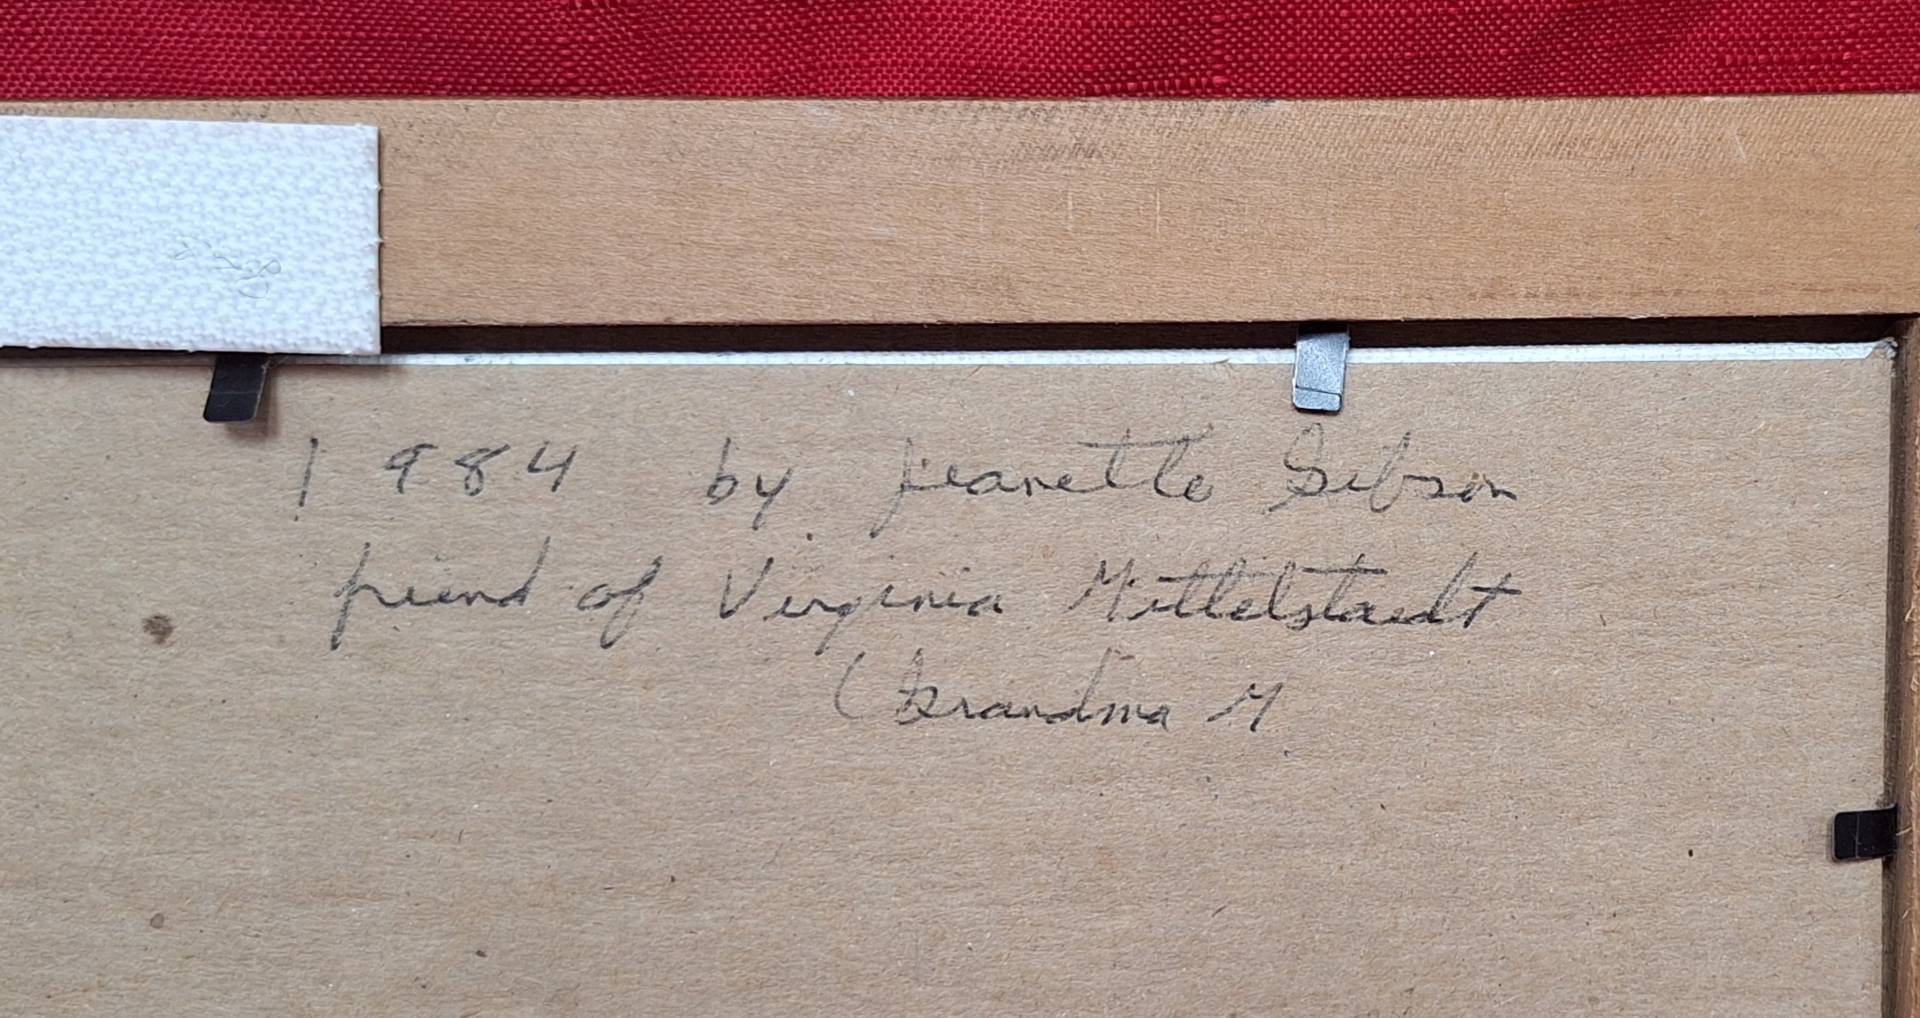 1984 by Jeanette Gibson
friend of Virginia Mittelstaedt
(Grandma M